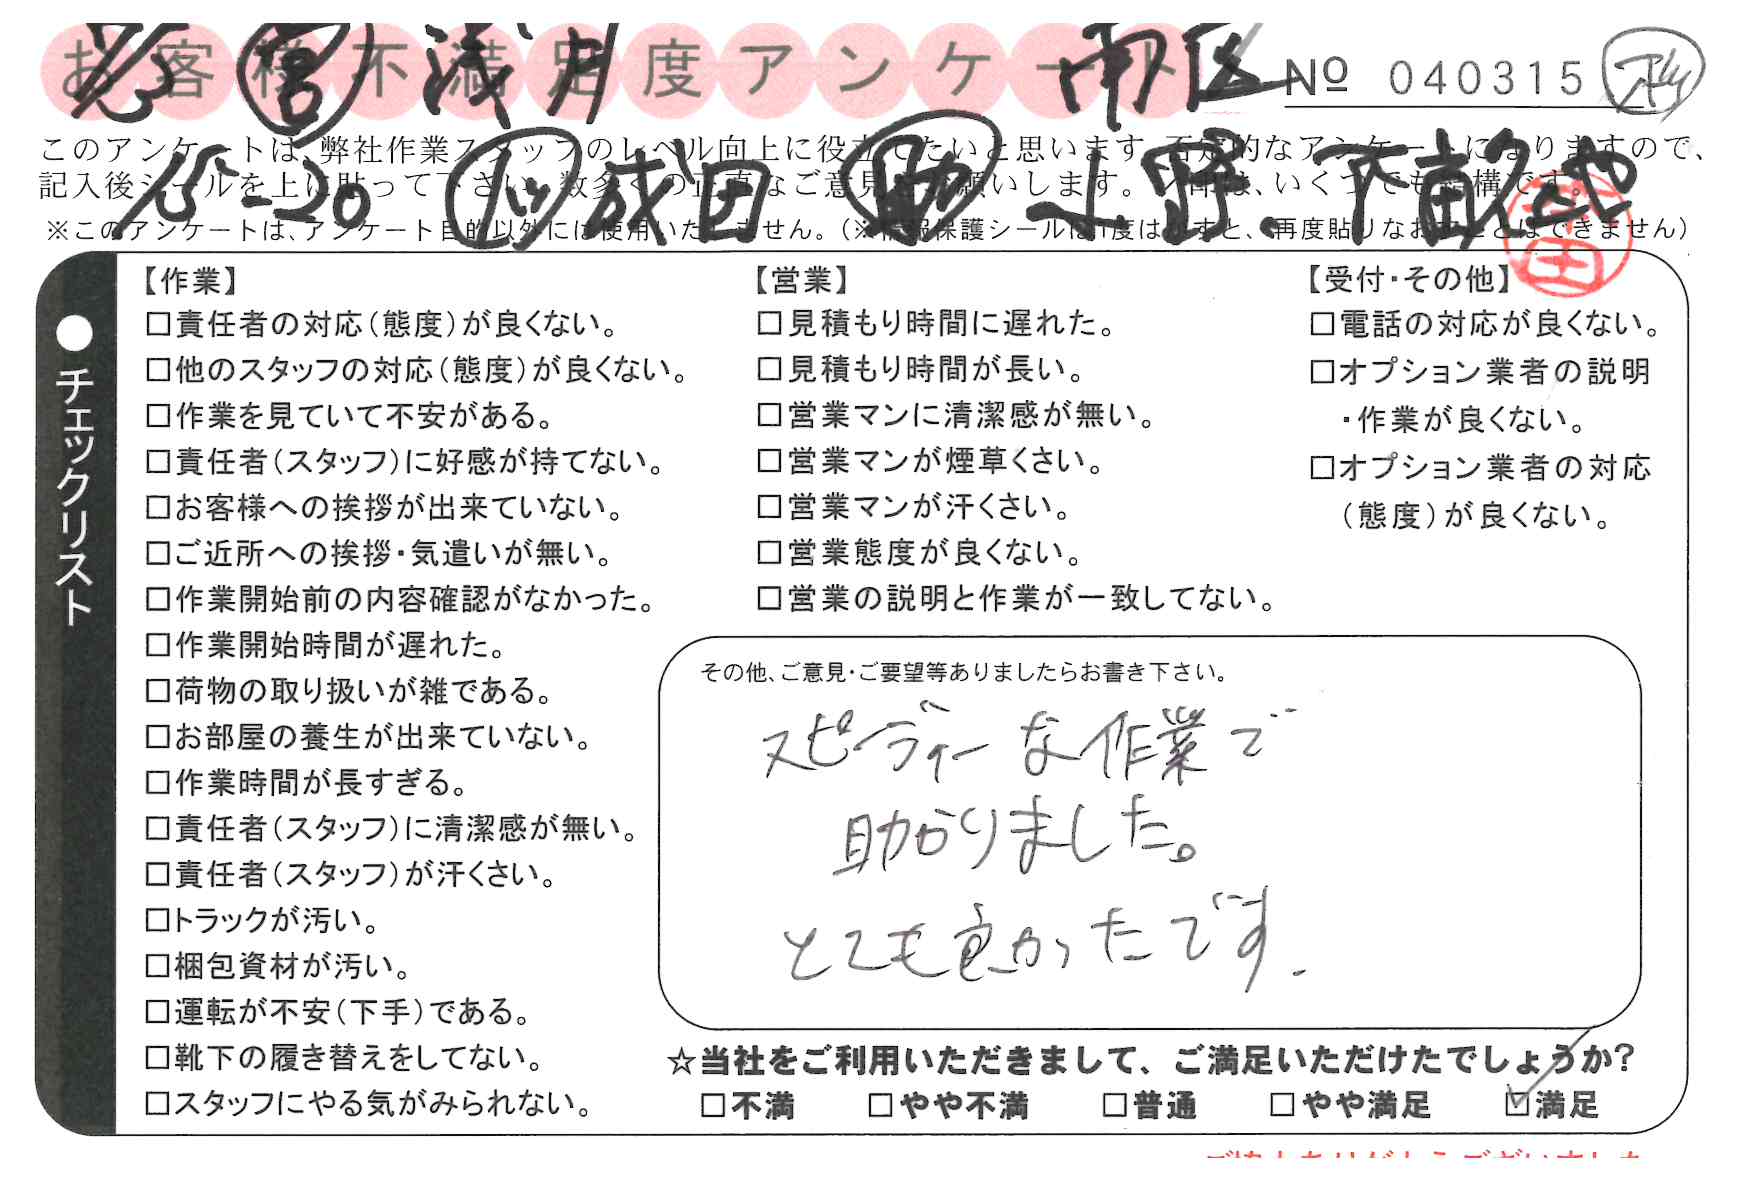 お客様不満足度アンケート
営 浅月 南区
NO 040315
このアンケートは、弊社作業スタッフのレベル向上に役立てたいと思います。否定的なアンケートになりますので、
記入後シールを上に貼って下さい。数多くの正直なご意見をお願いします。レ印は、いくつでも結構です。
15-20 成田 助 小野、
※このアンケートは、アンケート目的以外には使用いたしません。（※情報保護シールは1度はがすと、再度貼りなおすことはできません）
●チェックリスト
【作業】
□責任者の対応（態度）が良くない。
□他のスタッフの対応（態度）が良くない。
□作業を見ていて不安がある。
□責任者（スタッフ）に好感が持てない。
□お客様への挨拶が出来ていない。
□ご近所への挨拶・気遣いが無い。
□作業開始前の内容確認がなかった。
□作業開始時間が遅れた。
□荷物の取り扱いが雑である。
□お部屋の養生が出来ていない。
□作業時間が長すぎる。
□責任者（スタッフ）に清潔感が無い。
□責任者（スタッフ）が汗くさい。
□トラックが汚い。
□梱包資材が汚い。
□運転が不安（下手）である。
□靴下の履き替えをしてない。
□スタッフにやる気がみられない。
【営業】
□見積もり時間に遅れた。
□見積もり時間が長い。
□営業マンに清潔感が無い。
□営業マンが煙草くさい。
□営業マンが汗くさい。
□営業態度が良くない。
□営業の説明と作業が一致してない。
【受付・その他】
□電話の対応が良くない。
□オプション業者の説明
・作業が良くない。
□オプション業者の対応
（態度）が良くない。
その他、ご意見・ご要望等ありましたらお書き下さい。
スピーディーな作業で
助かりました。
とても良かったです.
☆当社をご利用いただきまして、ご満足いただけたでしょうか?
□不満 □やや不満 □普通 □やや満足 ☑満足
ご協力ありがとうございました